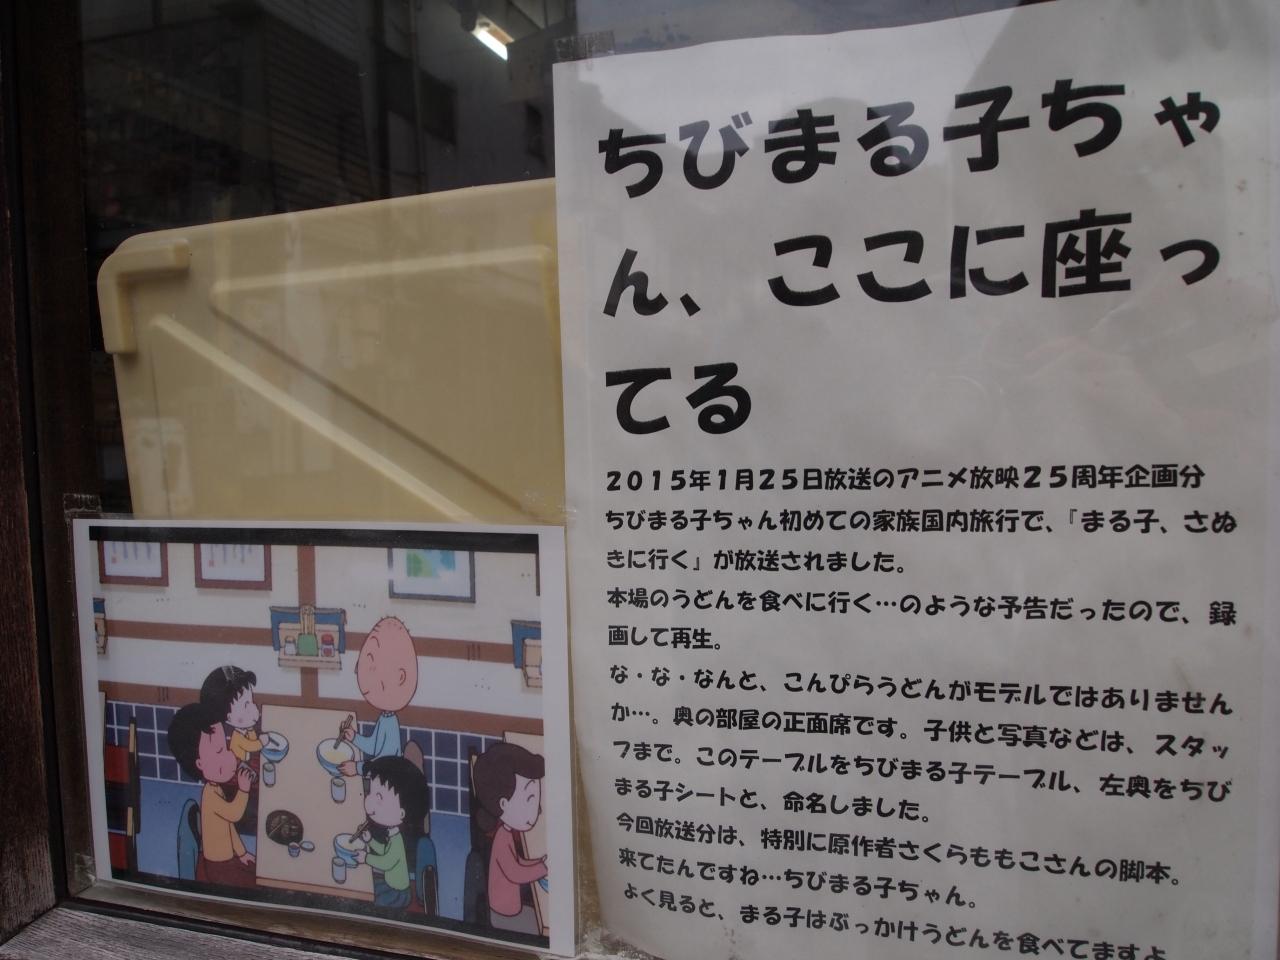 ちびまる子ちゃ
ん、ここに座っ
てる
2015年1月25日放送のアニメ放映25周年企画分
ちびまる子ちゃん初めての家族国内旅行で、『まる子、さぬ
きに行く』が放送されました。
本場のうどんを食べに行く…のような予告だったので、録
画して再生。
な・な・なんと、こんぴらうどんがモデルではありません
か…。奥の部屋の正面席です。子供と写真などは、スタッ
フまで。このテーブルをちびまる子テーブル、左奥をちび
まる子シートと、命名しました。
今回放送分は、特別に原作者さくらももこさんの脚本。
来てたんですね…ちびまる子ちゃん。
よく見ると、まる子はぶっかけうどんを食べてますよ